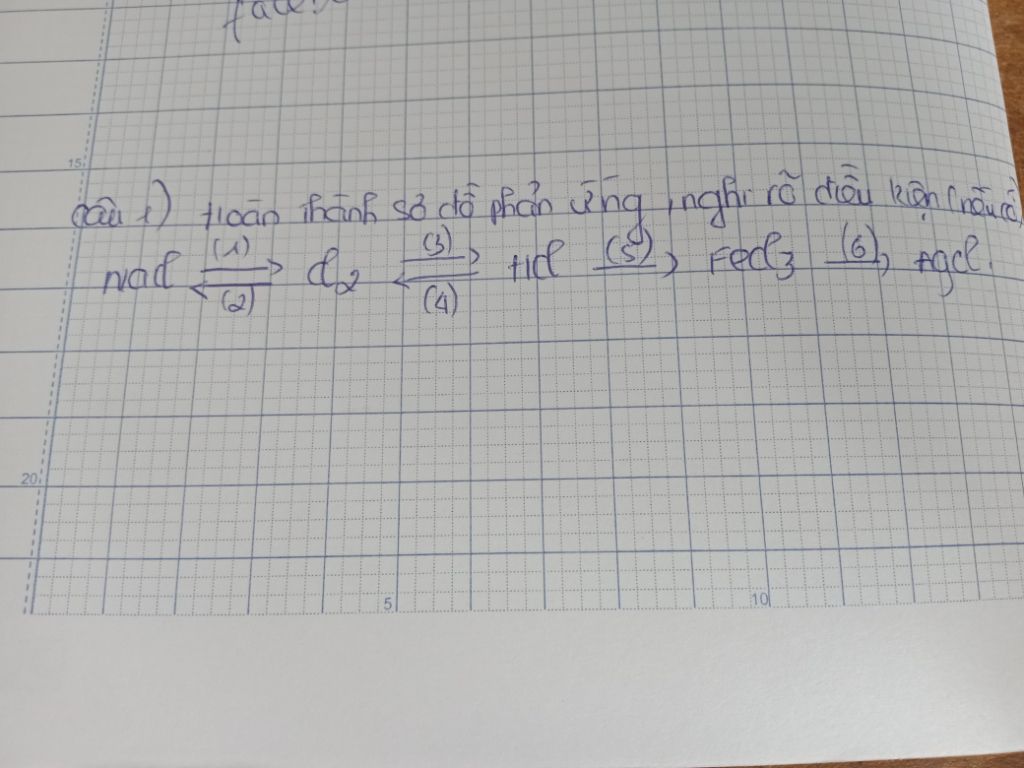 Câu 1) Hoàn thành sơ đồ phản ứng, nghi rõ điều kiện (nếu có)
NaCl (1) ⇌ (2) Cl₂ (3) ⇌ (4) HCl (5) → FeCl₃ (6) → AgCl.
15
20
5
10